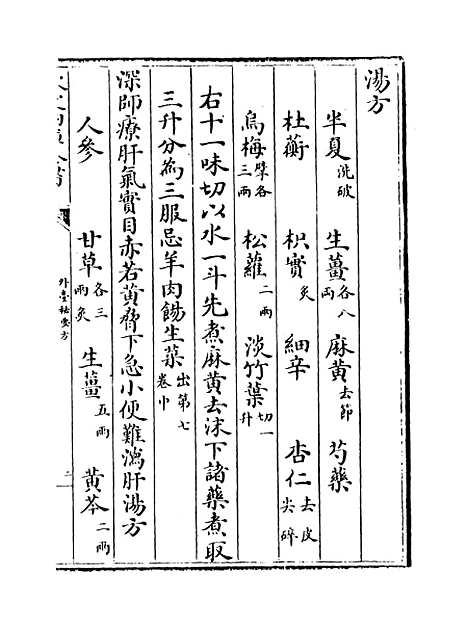 湯方
半夏洗破 生薑各八兩 麻黄去節 芍藥
杜蘅 枳實炙 細辛 杏仁去皮尖碎
烏梅擘各三兩 松蘿二兩 淡竹葉切一升
右十一味切以水一斗先煮麻黄去沫下諸藥煮取
三升分為三服忌羊肉餳生菜出第七卷中
深師療肝氣實目赤若黄脅下急小便難瀉肝湯方
人參 甘草各三兩炙 生薑五兩 黄芩二兩
外臺秘要方
二